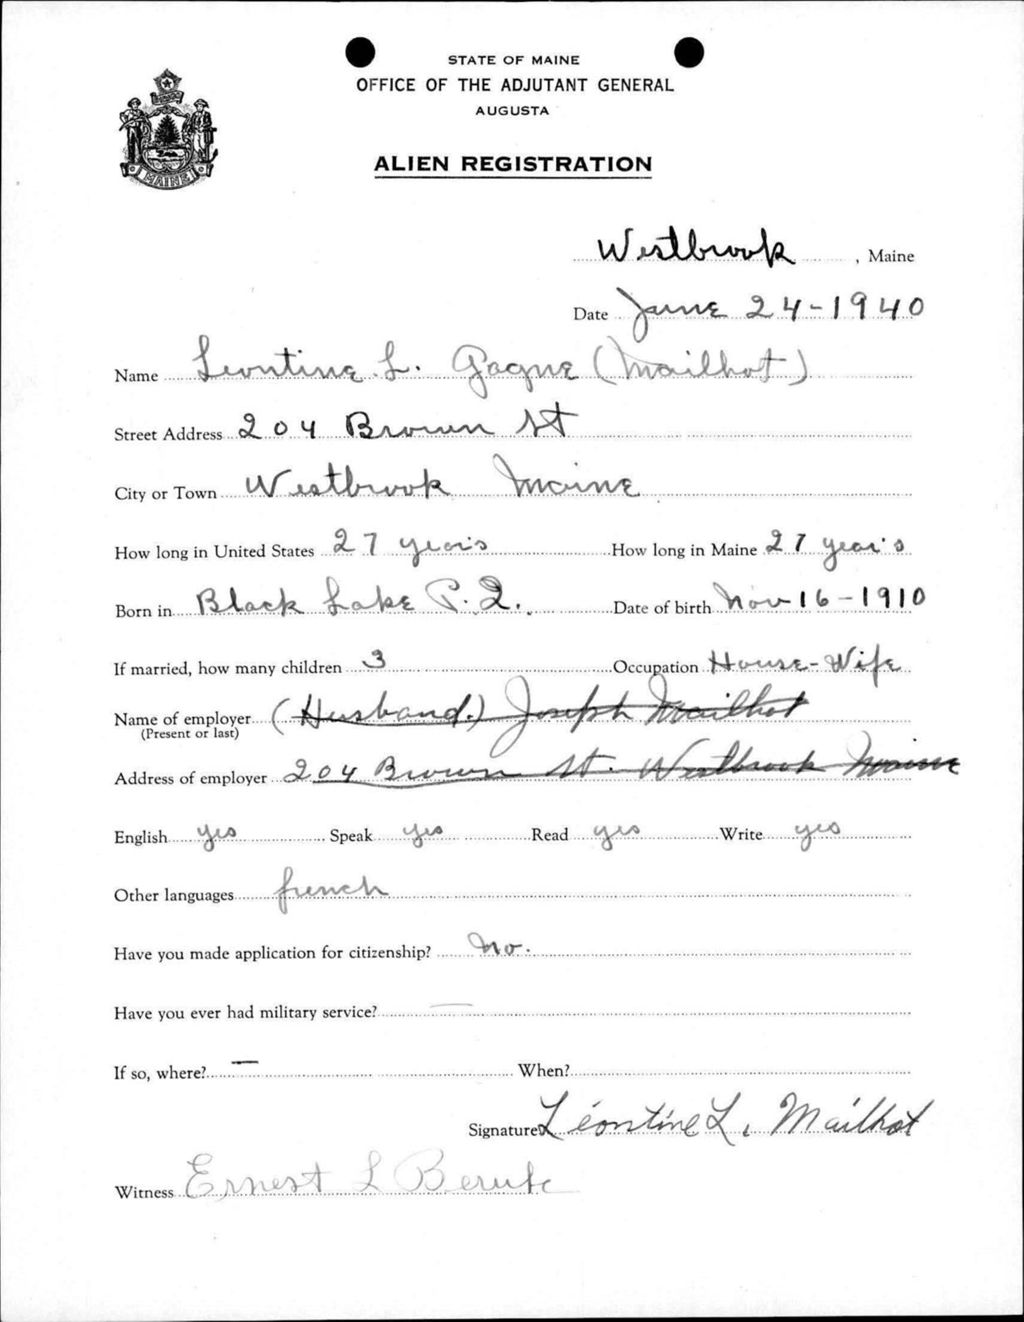 STATE OF MAINE
OFFICE OF THE ADJUTANT GENERAL
AUGUSTA
ALIEN REGISTRATION
MAINE
Westbrook, Maine
Date June 24-1940
Name Leontine L. Gagne (Mailhot)
Street Address 204 Brown St
City or Town Westbrook Maine
How long in United States 27 years How long in Maine 27 years
Born in Black Lake P.Q. Date of birth Nov 16-1910
If married, how many children 3 Occupation House-Wife
Name of employer (Husband.) Joseph Mailhot
(Present or last)
Address of employer 204 Brown St. Westbrook Maine
English yes Speak yes Read yes Write yes
Other languages french
Have you made application for citizenship? No.
Have you ever had military service? —
If so, where? — When?
Signature Léontine L. Mailhot
Witness Ernest L Berube